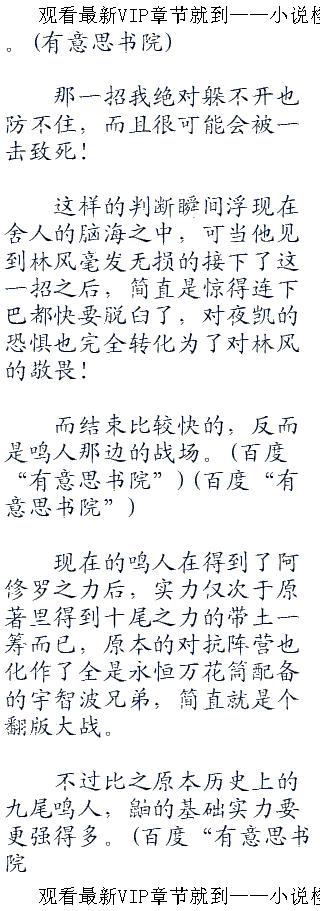 观看最新VIP章节就到——小说
。(有意思书院)
那一招我绝对躲不开也
防不住，而且很可能会被一
击致死！
这样的判断瞬间浮现在
舍人的脑海之中，可当他见
到林风毫发无损的接下了这
一招之后，简直是惊得连下
巴都快要脱臼了，对夜凯的
恐惧也完全转化为了对林风
的敬畏！
而结束比较快的，反而
是鸣人那边的战场。(百度
“有意思书院”)(百度“有
意思书院”)
现在的鸣人在得到了阿
修罗之力后，实力仅次于原
著里得到十尾之力的带土一
筹而已，原本的对抗阵营也
化作了全是永恒万花筒配备
的宇智波兄弟，简直就是个
翻版大战。
不过比之原本历史上的
九尾鸣人，鼬的基础实力要
更强得多。(百度“有意思书
院
观看最新VIP章节就到——小说